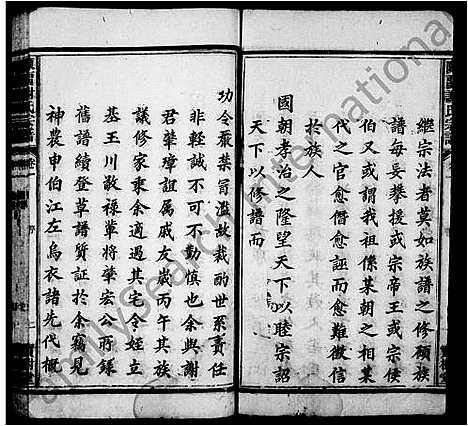 繼宗法者莫如族譜之修顧族
譜每妄攀援或宗帝王或宗侯
伯又或謂我祖係某朝之相某
代之官愈借愈誣而愈難徵信
於族人
國朝孝治之隆望天下以睦宗詔
天下以修譜而
功令嚴禁冒濫故裁酌世系責任
非輕誠不可不勤慎也余與謝
君華璋誼屬戚友歲丙午其族
議修家乘余適過其宅令姪立
基王川敬祿單將肇宏公所鐸
舊語續登草譜質証於余竊見
神農申伯江左烏衣諸先代概
familysearch international